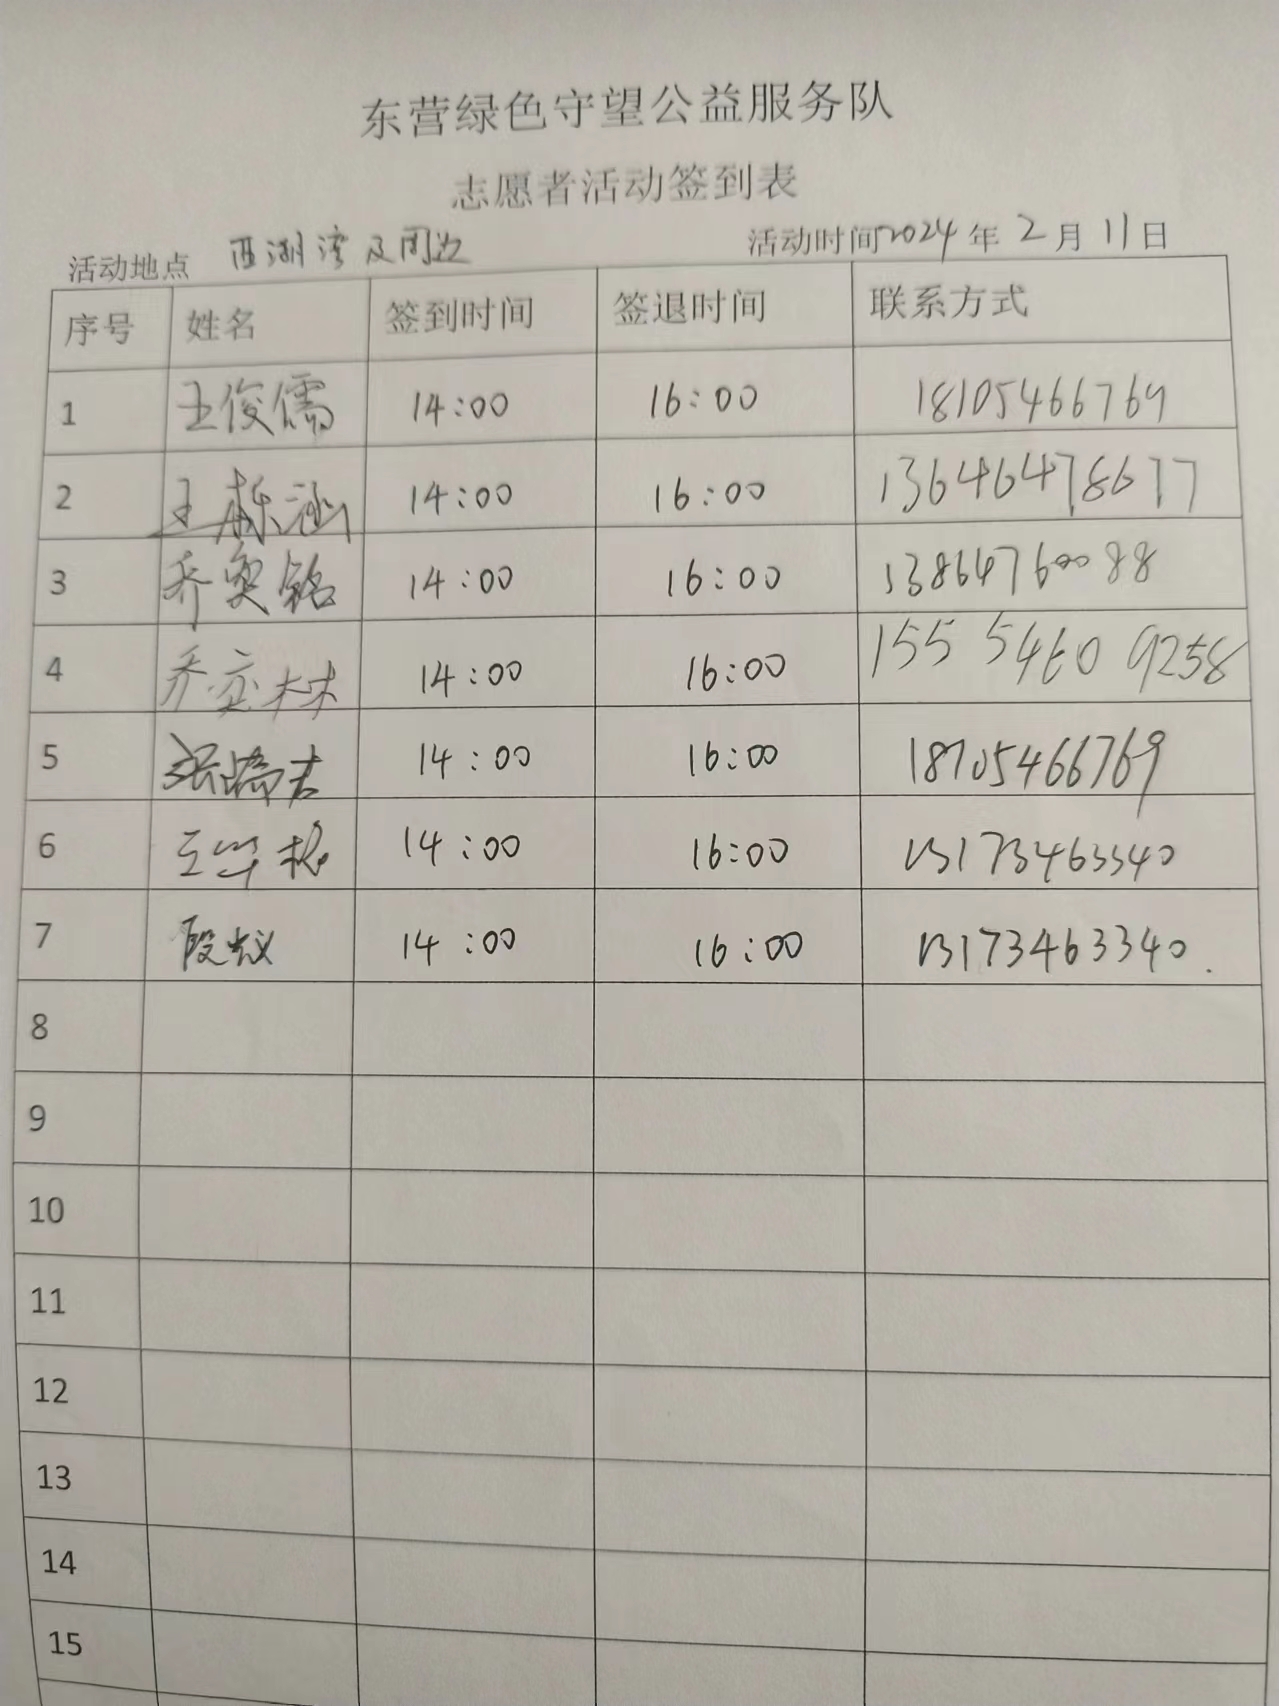 东营绿色守望公益服务队
志愿者活动签到表
活动地点 西湖湾及周边 活动时间2024年2月11日
序号 姓名 签到时间 签退时间 联系方式
1 王俊儒 14:00 16:00 18105466769
2 王栎涵 14:00 16:00 13646478677
3 乔奕铭 14:00 16:00 13864760088
4 乔亦林 14:00 16:00 155 5460 9258
5 14:00 16:00 18105466769
6 王华 14:00 16:00 13173463340
7 段 14:00 16:00 13173463340.
8
9
10
11
12
13
14
15